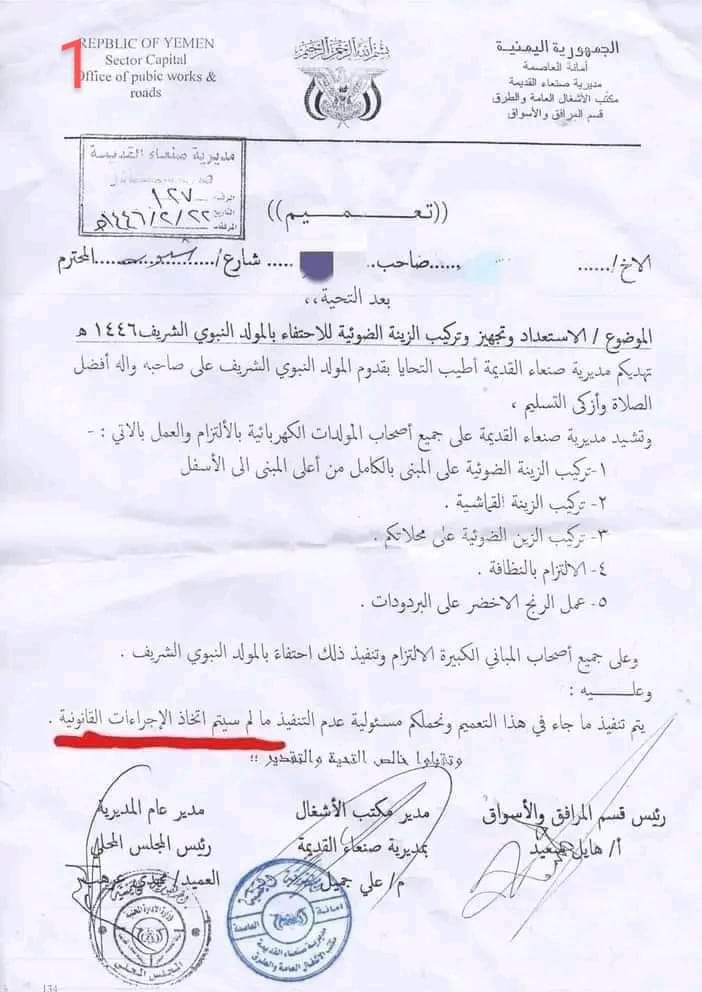 1
REPBLIC OF YEMEN
Sector Capital
Office of pubic works &
roads
بسم الله الرحمن الرحيم
الجمهورية اليمنية
أمانة العاصمة
مديرية صنعاء القديمة
مكتب الأشغال العامة والطرق
قسم المرافق والأسواق
مديرية صنعاء القديمة
١٢٧
التاريخ ١٤٤٦/٢/٢٢هـ
المرفقات
((تعـــــــميم))
الاخ/...... ......صاحب.. ..... شارع/...............المحترم
بعد التحية،،
الموضوع / الاستعداد وتجهيز وتركيب الزينة الضوئية للاحتفاء بالمولد النبوي الشريف١٤٤٦ هـ
تهديكم مديرية صنعاء القديمة أطيب التحايا بقدوم المولد النبوي الشريف على صاحبه واله أفضل
الصلاة وأزكى التسليم ،
وتشيد مديرية صنعاء القديمة على جميع أصحاب المولدات الكهربائية بالألتزام والعمل بالاتي : -
١-تركيب الزينة الضوئية على المبنى بالكامل من أعلى المبنى الى الأسفل
٢- تركيب الزينة القماشية .
٣- تركيب الزين الضوئية على محلاتكم .
٤- الالتزام بالنظافة .
٥- عمل الرنج الاخضر على البردودات .
وعلى جميع أصحاب المباني الكبيرة الالتزام وتنفيذ ذلك احتفاءً بالمولد النبوي الشريف .
وعلـــيه :
يتم تنفيذ ما جاء في هذا التعميم ونحملكم مسئولية عدم التنفيذ ما لم سيتم اتخاذ الإجراءات القانونية .
وتقبلوا خالص التحية والتقدير !!
رئيس قسم المرافق والأسواق
أ/ هايل سعيد
مدير مكتب الأشغال
بمديرية صنعاء القديمة
م/ علي جميل
مدير عام المديرية
رئيس المجلس المحلي
العميد/ مجدي عرهب
امانة العاصمة
مديرية صنعاء القديمة
مكتب الاشغال العامة والطرق
وزارة الادارة المحلية
المجلس المحلي
134